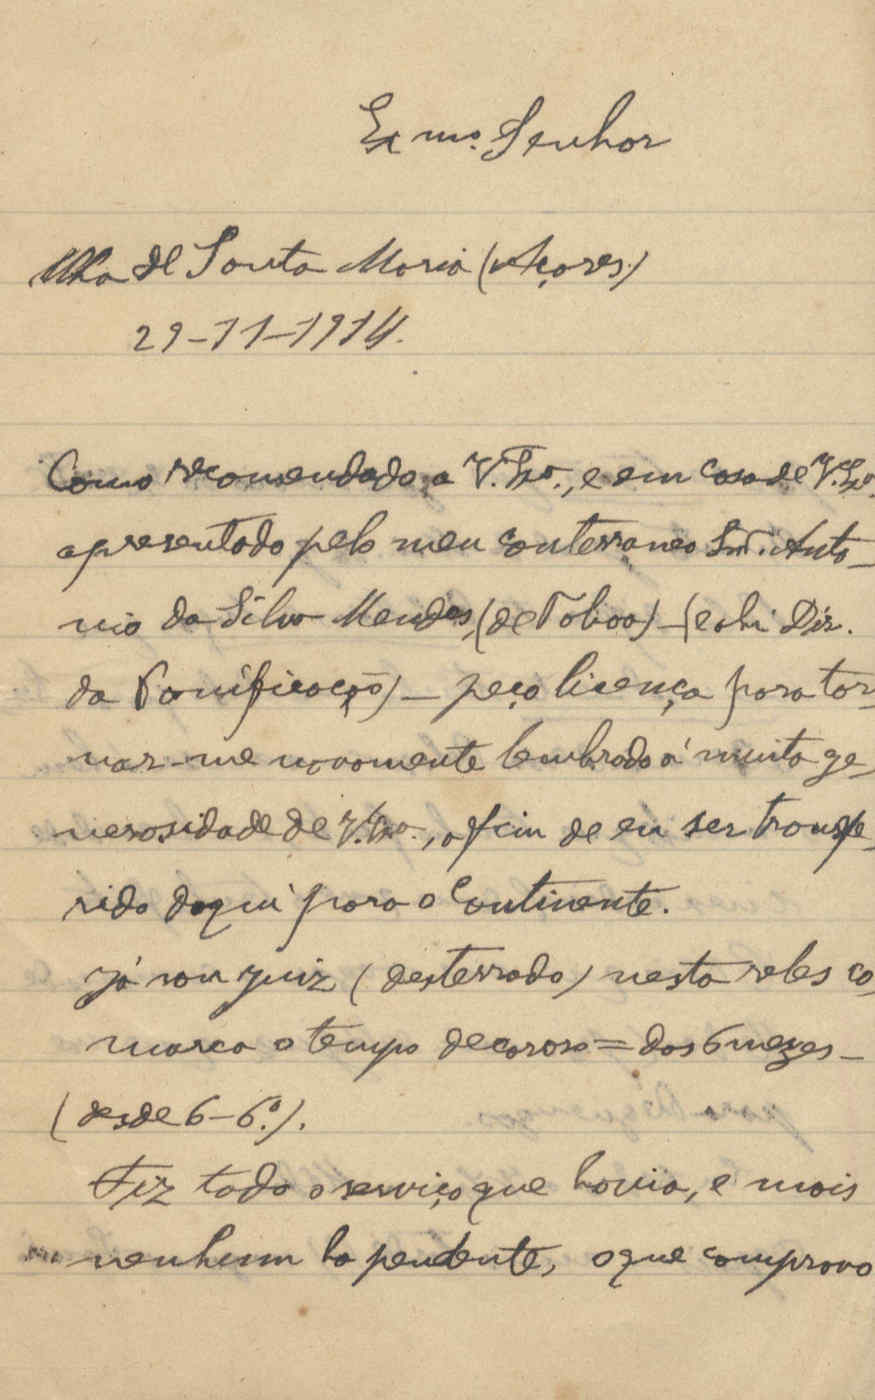 Exmo. Senhor
Ilha de Santa Maria (Açores)
29-11-1914.
Como recomendado a V. Exa., e em casa de V. Exa.
apresentado pelo meu conterraneo Snr. Anto-
nio da Silva Mendes, (de Taboa) — (e ahi Dir.
da Panificação) — peço licença para tor-
nar-me novamente lembrado á muita ge-
nerosidade de V. Exa., afim de eu ser transfe-
rido daqui para o Continente.
Já sou juiz (desterrado) nesta reles co-
marca o tempo decoroso = dos 6 mezes —
(desde 6-6.º).
Fiz todo o serviço que havia, e mais
nenhum ha pendente, o que comprovo